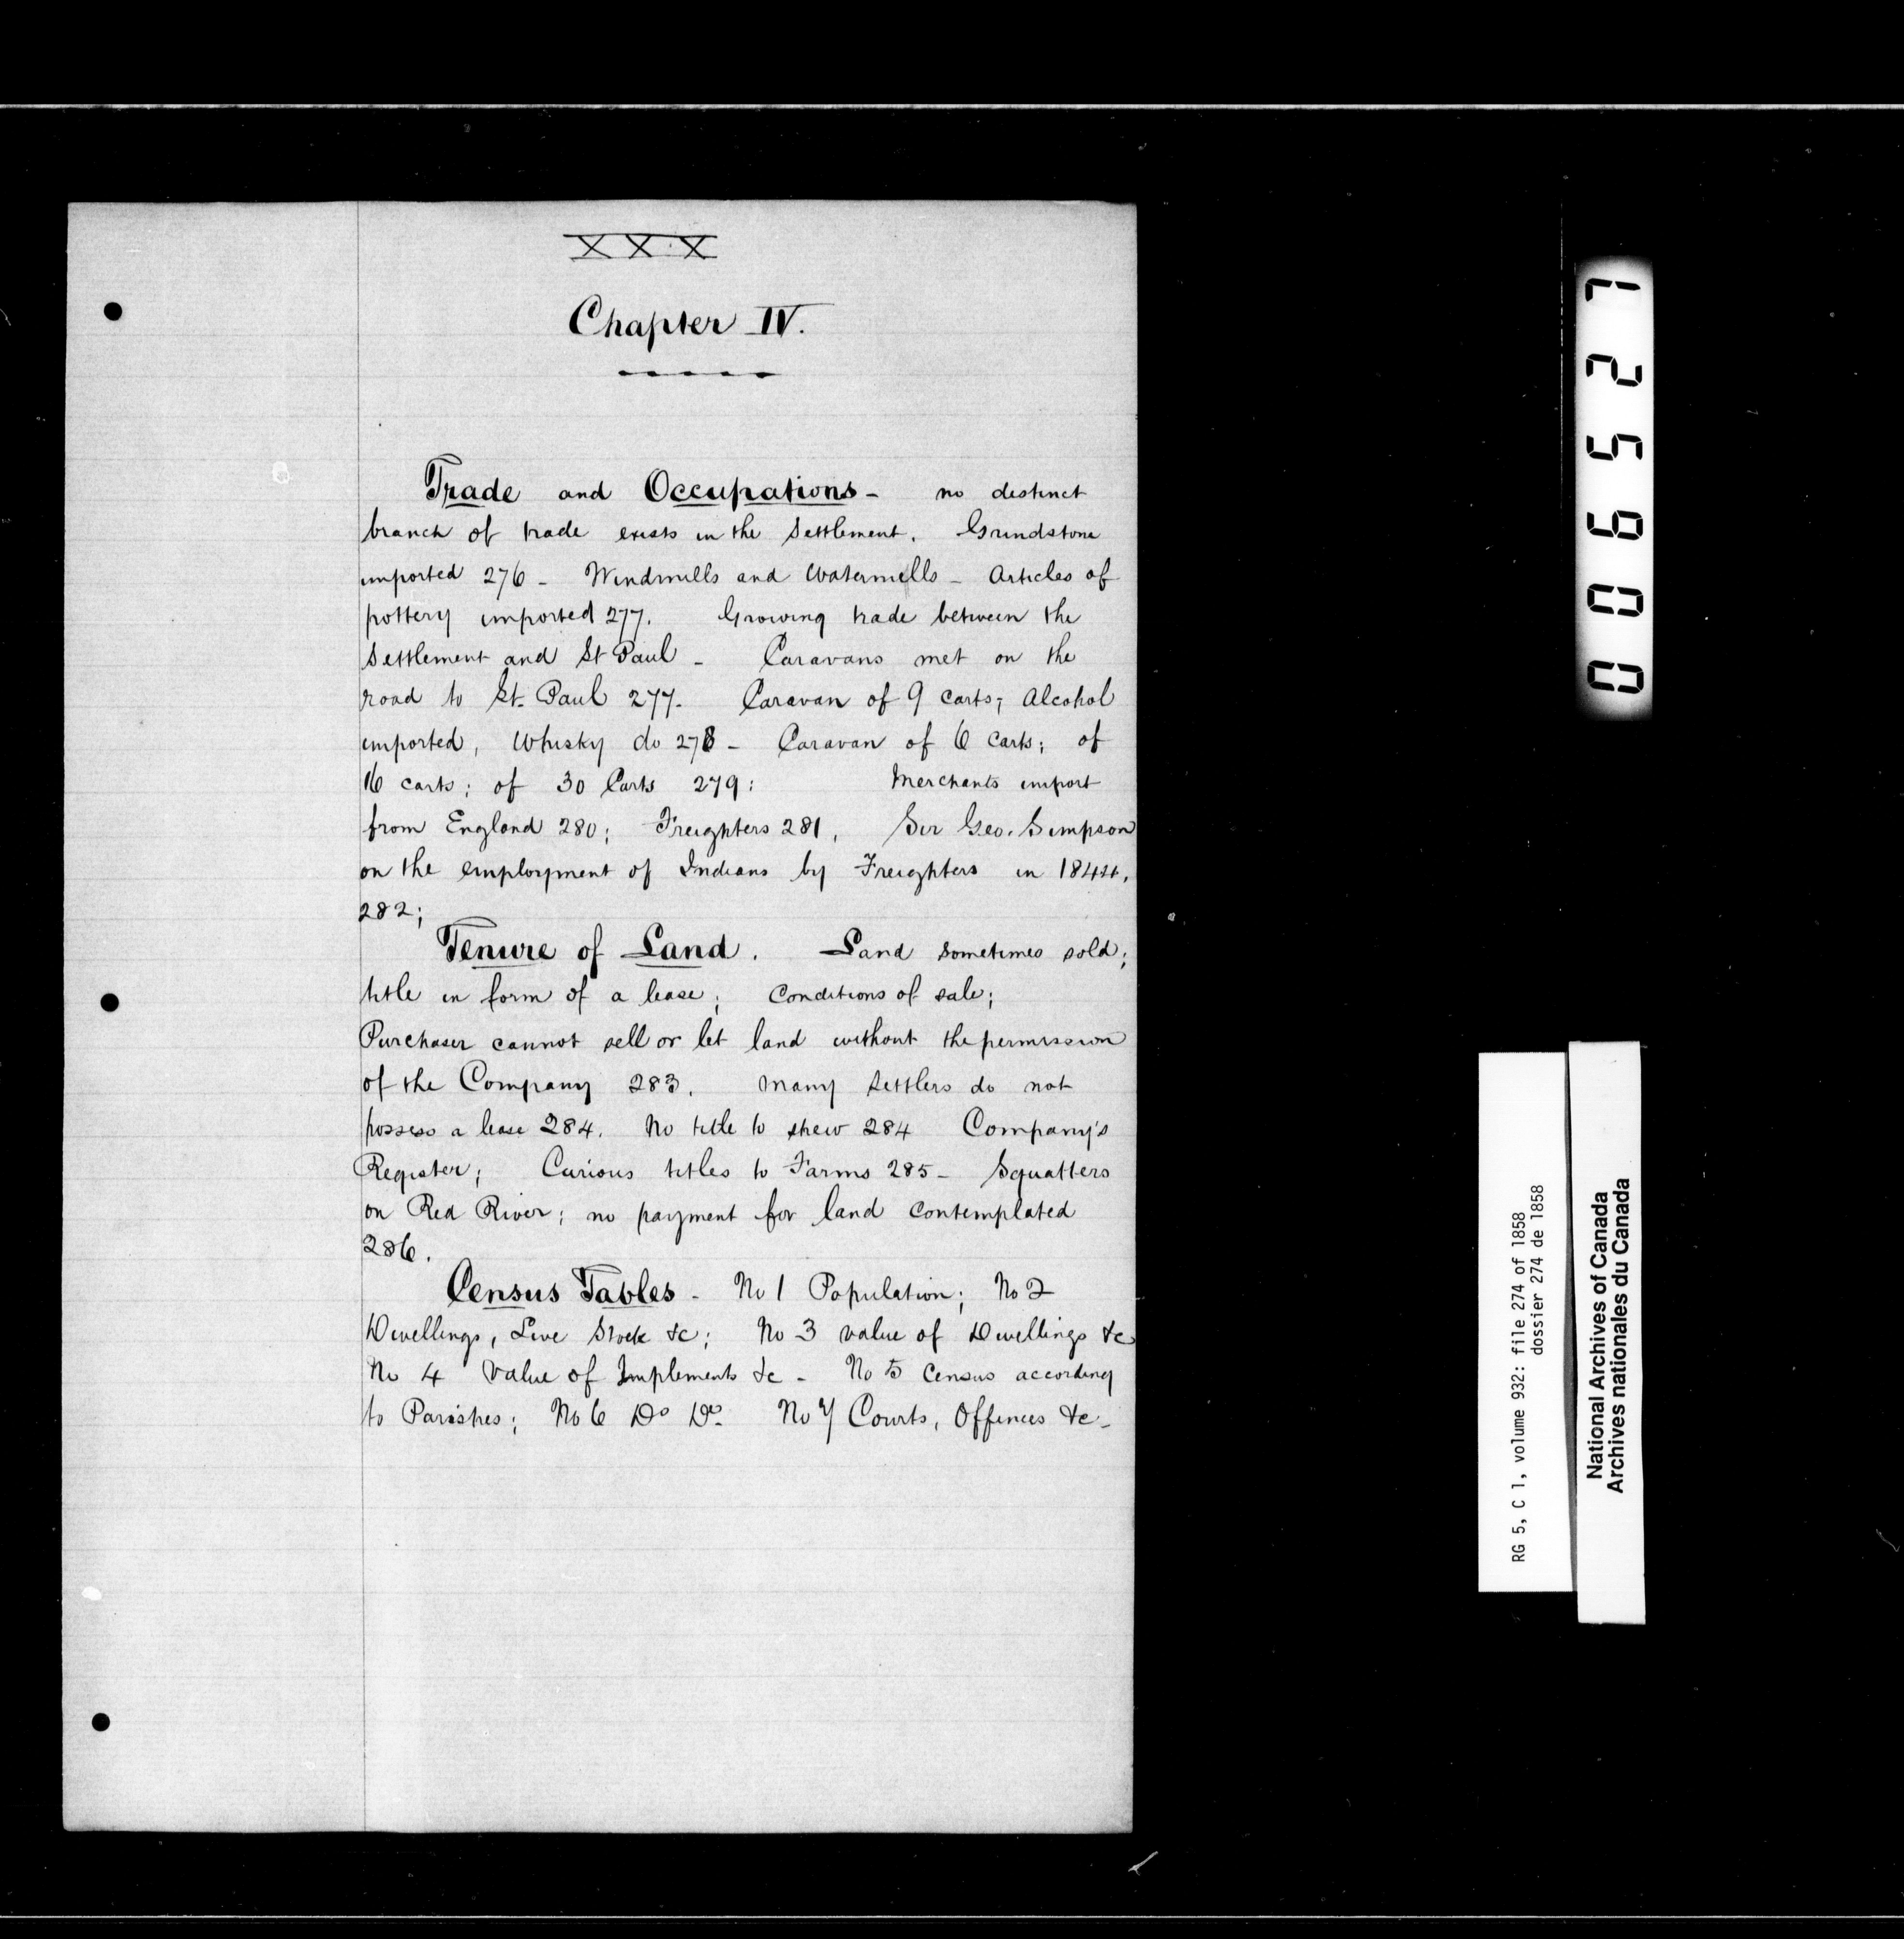 XXX
Chapter IV.
Trade and Occupations - no distinct
branch of trade exists in the Settlement. Grindstone
imported 276 - Windmills and Watermills - Articles of
pottery imported 277. Growing trade between the
Settlement and St Paul - Caravans met on the
road to St. Paul 277. Caravan of 9 carts; Alcohol
imported, Whisky do 278 - Caravan of 6 carts; of
16 carts; of 30 Carts 279: Merchants import
from England 280; Freighters 281, Sir Geo. Simpson
on the employment of Indians by Freighters in 1844,
282;
Tenure of Land. Land sometimes sold;
title in form of a lease; Conditions of sale;
Purchaser cannot sell or let land without the permission
of the Company 283. Many Settlers do not
possess a lease 284. No title to shew 284 Company's
Register; Curious titles to Farms 285 - Squatters
on Red River; no payment for land contemplated
286.
Census Tables - No 1 Population; No 2
Dwellings, Live Stock &c; No 3 value of Dwellings &c
No 4 Value of Implements &c - No 5 Census according
to Parishes; No 6 Do Do. No 7 Courts, Offences &c -
006527
RG 5, C 1, volume 932: file 274 of 1858
dossier 274 de 1858
National Archives of Canada
Archives nationales du Canada